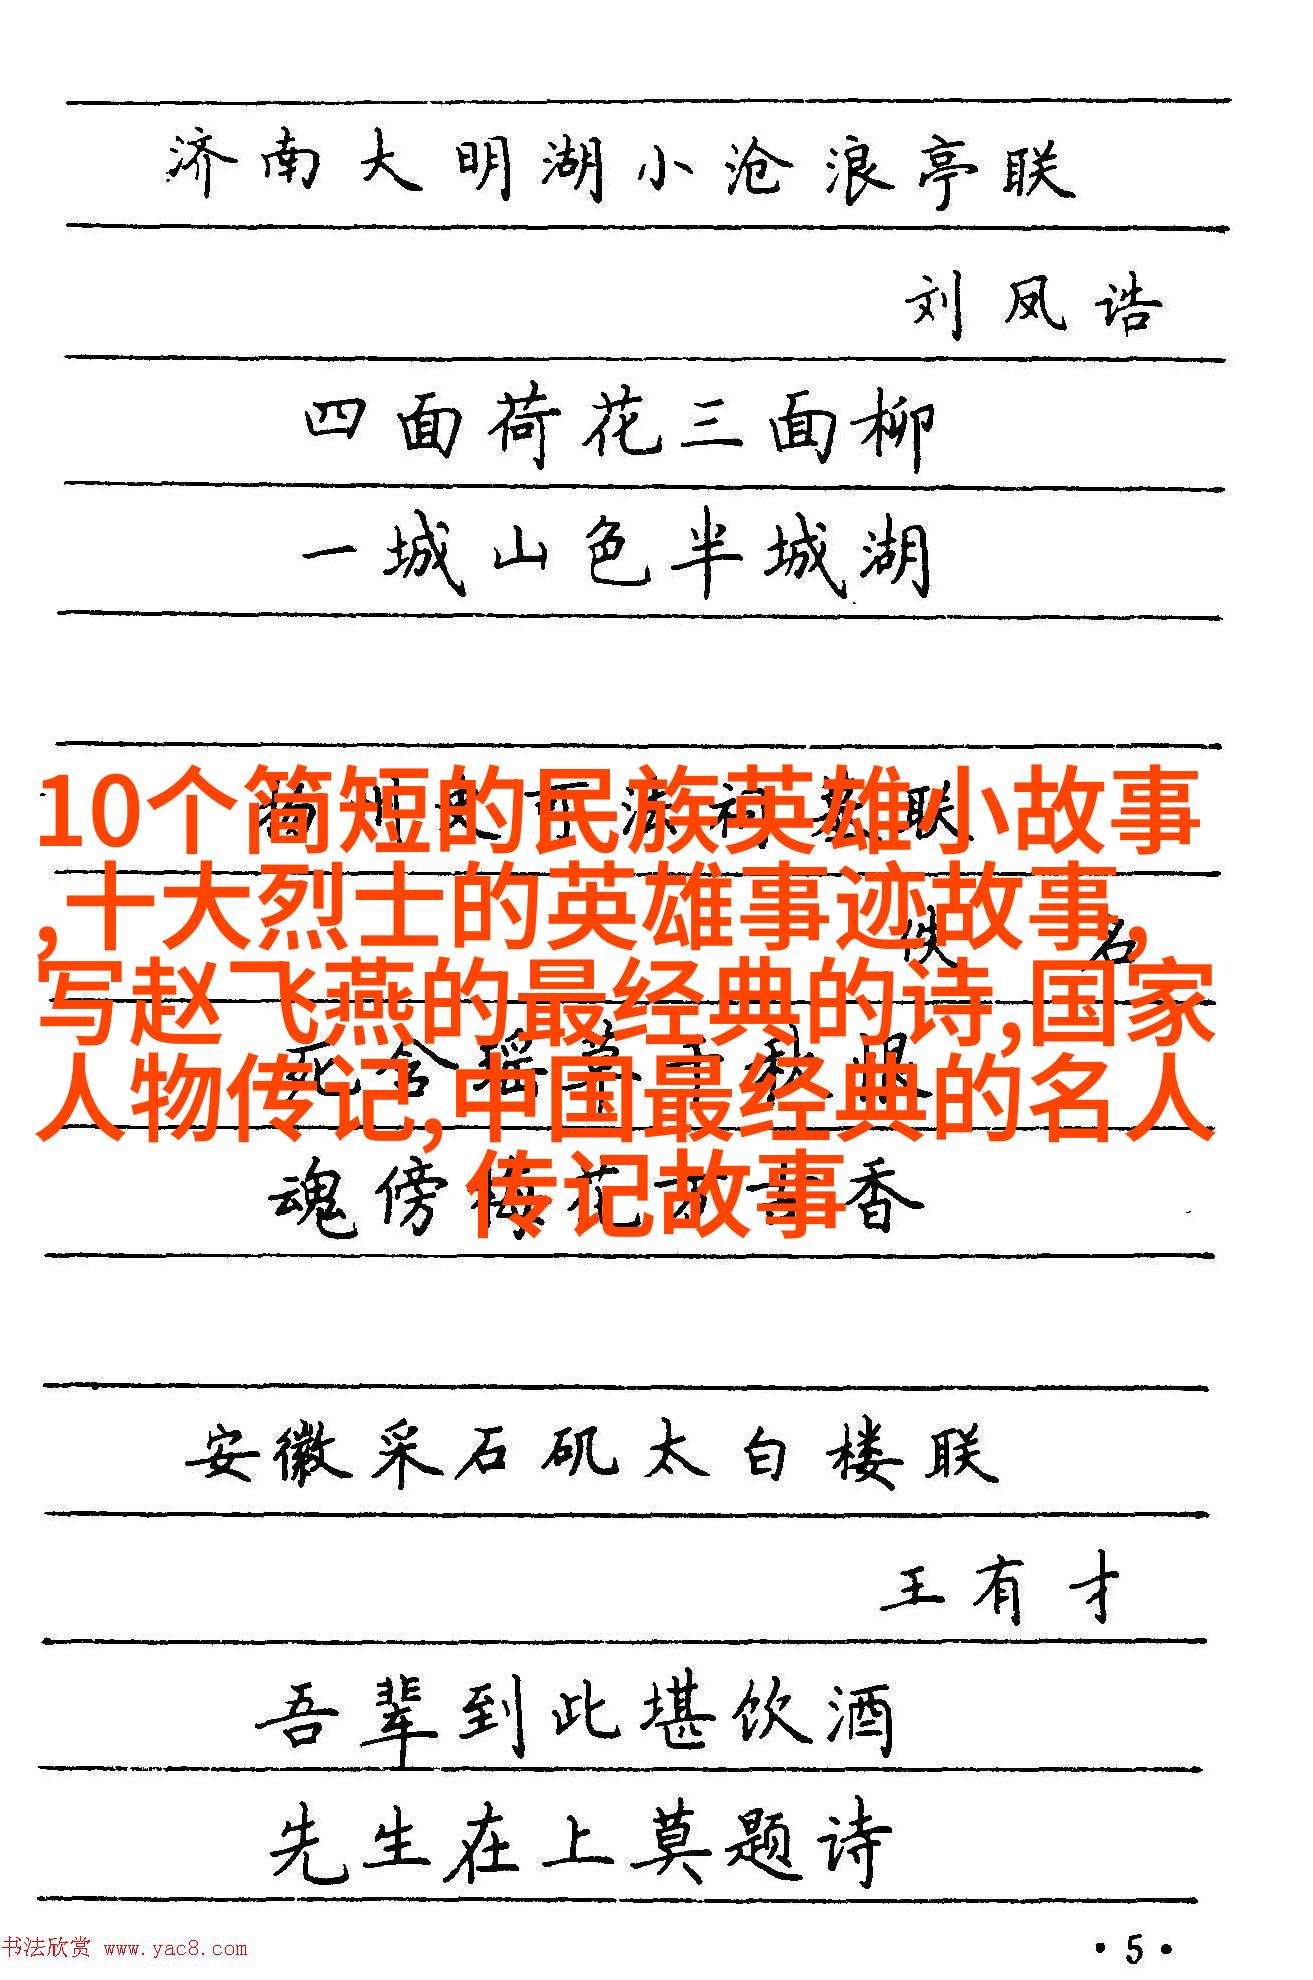 济南大明湖小沧浪亭联
刘凤诰
四面荷花三面柳
一城山色半城湖
10个简短的民族英雄小故事
,十大烈士的英雄事迹故事,
佚名
写赵飞燕的最经典的诗,国家
人物传记,中国最经典的名人
传记故事
魂傍梅花万古香
安徽采石矶太白楼联
王有才
吾辈到此堪饮酒
先生在上莫题诗
书法欣赏 www.yac8.com
·5·